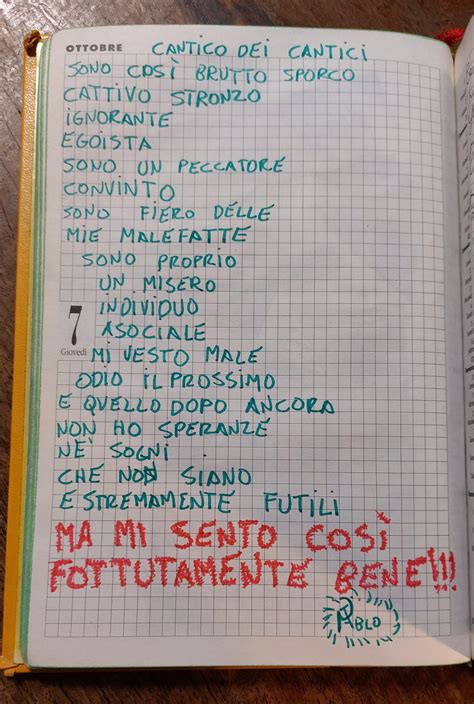 OTTOBRE CANTICO DEI CANTICI
SONO COSÌ BRUTTO SPORCO
CATTIVO STRONZO
IGNORANTE
EGOISTA
SONO UN PECCATORE
CONVINTO
SONO FIERO DELLE
MIE MALEFATTE
SONO PROPRIO
UN MISERO
INDIVIDUO
7
ASOCIALE
Giovedì
MI VESTO MALE
ODIO IL PROSSIMO
E QUELLO DOPO ANCORA
NON HO SPERANZE
NE' SOGNI
CHE NON SIANO
ESTREMAMENTE FUTILI
MA MI SENTO COSÌ
FOTTUTAMENTE BENE!!!
PABLO